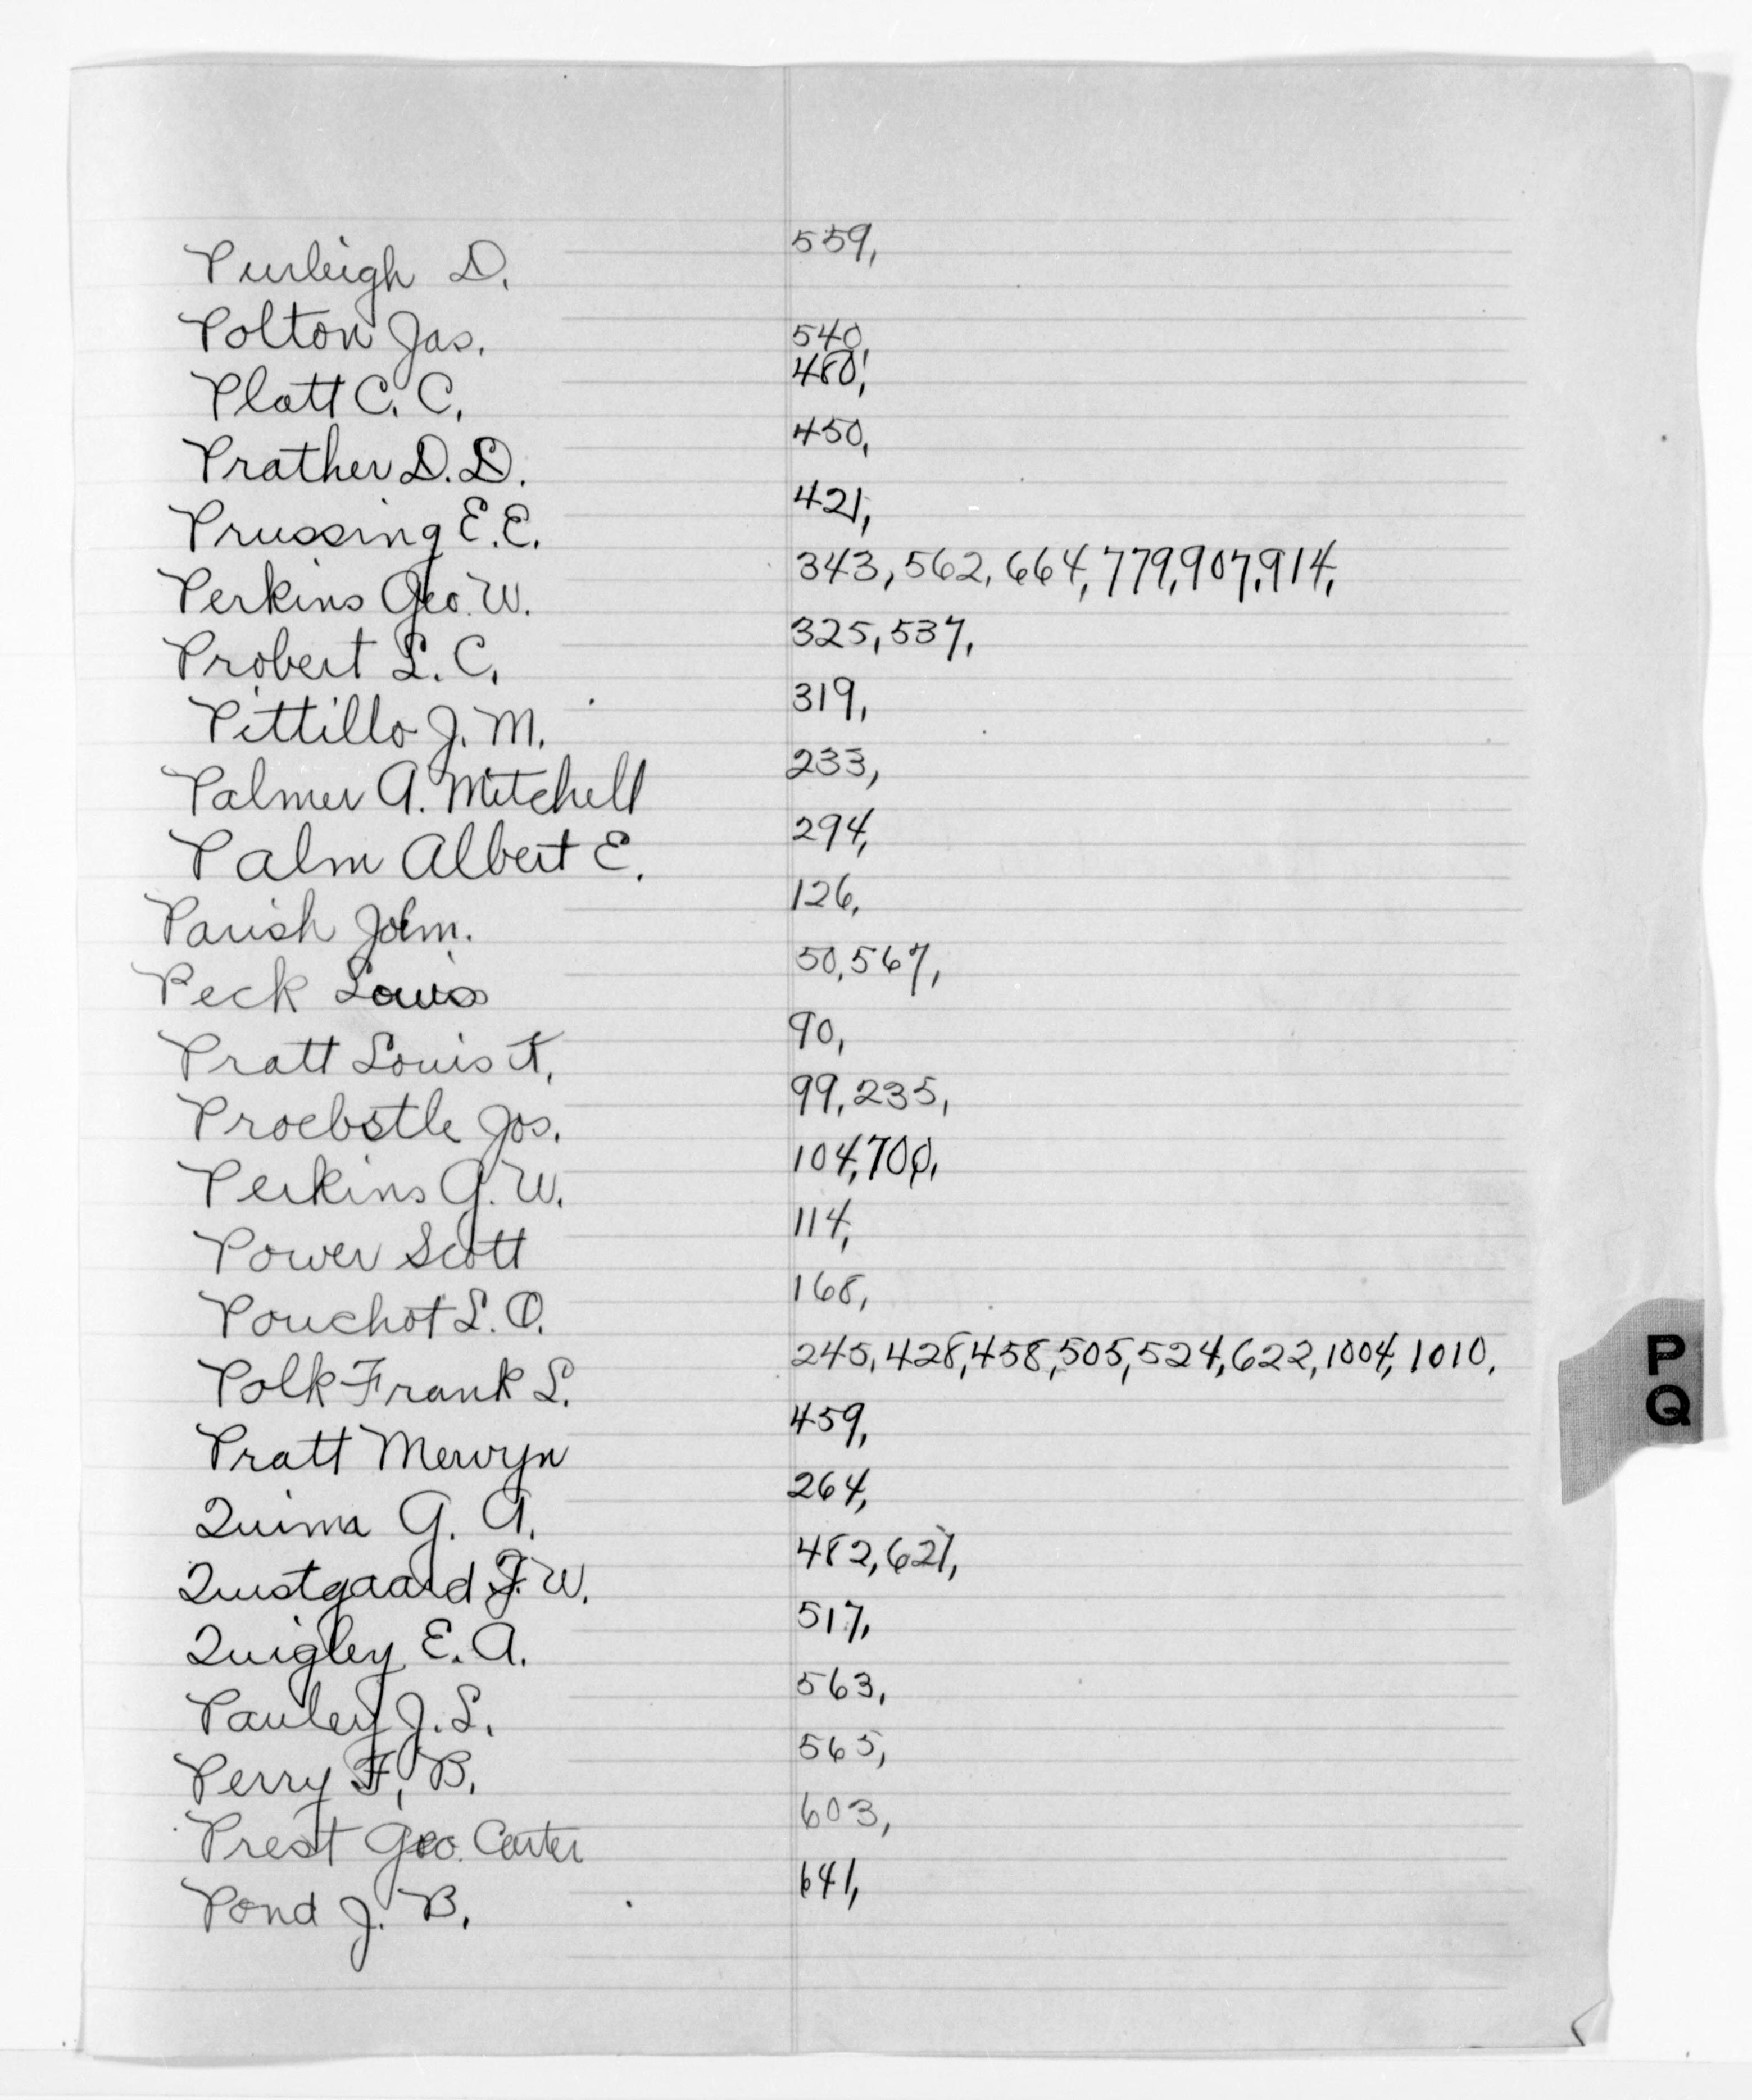 Purleigh D. 559,
Polton Jas. 540,
Platt C. C. 480,
Prather D. D. 450,
Prussing E. E. 421,
Perkins Geo. W. 343, 562, 664, 779, 907, 914,
Probert L. C. 325, 537,
Pittillo J. M. 319,
Palmer A. Mitchell 233,
Palm Albert E. 294,
Parish John. 126,
Peck Louis 50, 567,
Pratt Louis K. 90,
Proebstle Jos. 99, 235,
Perkins G. W. 104, 700,
Power Scott 114,
Pouchot L. O. 168,
Polk Frank L. 245, 428, 458, 505, 524, 622, 1004, 1010,
P
Q
Pratt Mervyn 459,
G. A. 264,
Quistgaard J. W. 482, 621,
Quigley E. A. 517,
Pauley J. L. 563,
Perry F. B. 565,
Prest Geo. Carter 603,
Pond J. B. 641,